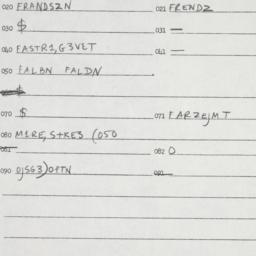 020 FRANDSZN 021 FRENDZ
030 $ 031 —
040 FASTR1,G3VET 041 —
050 FALBN FALDN
$
070 $ 071 FARZEJMT
080 M1RE,S+KE3 (050
081 082 O
090 OJSG3)OPTN 091